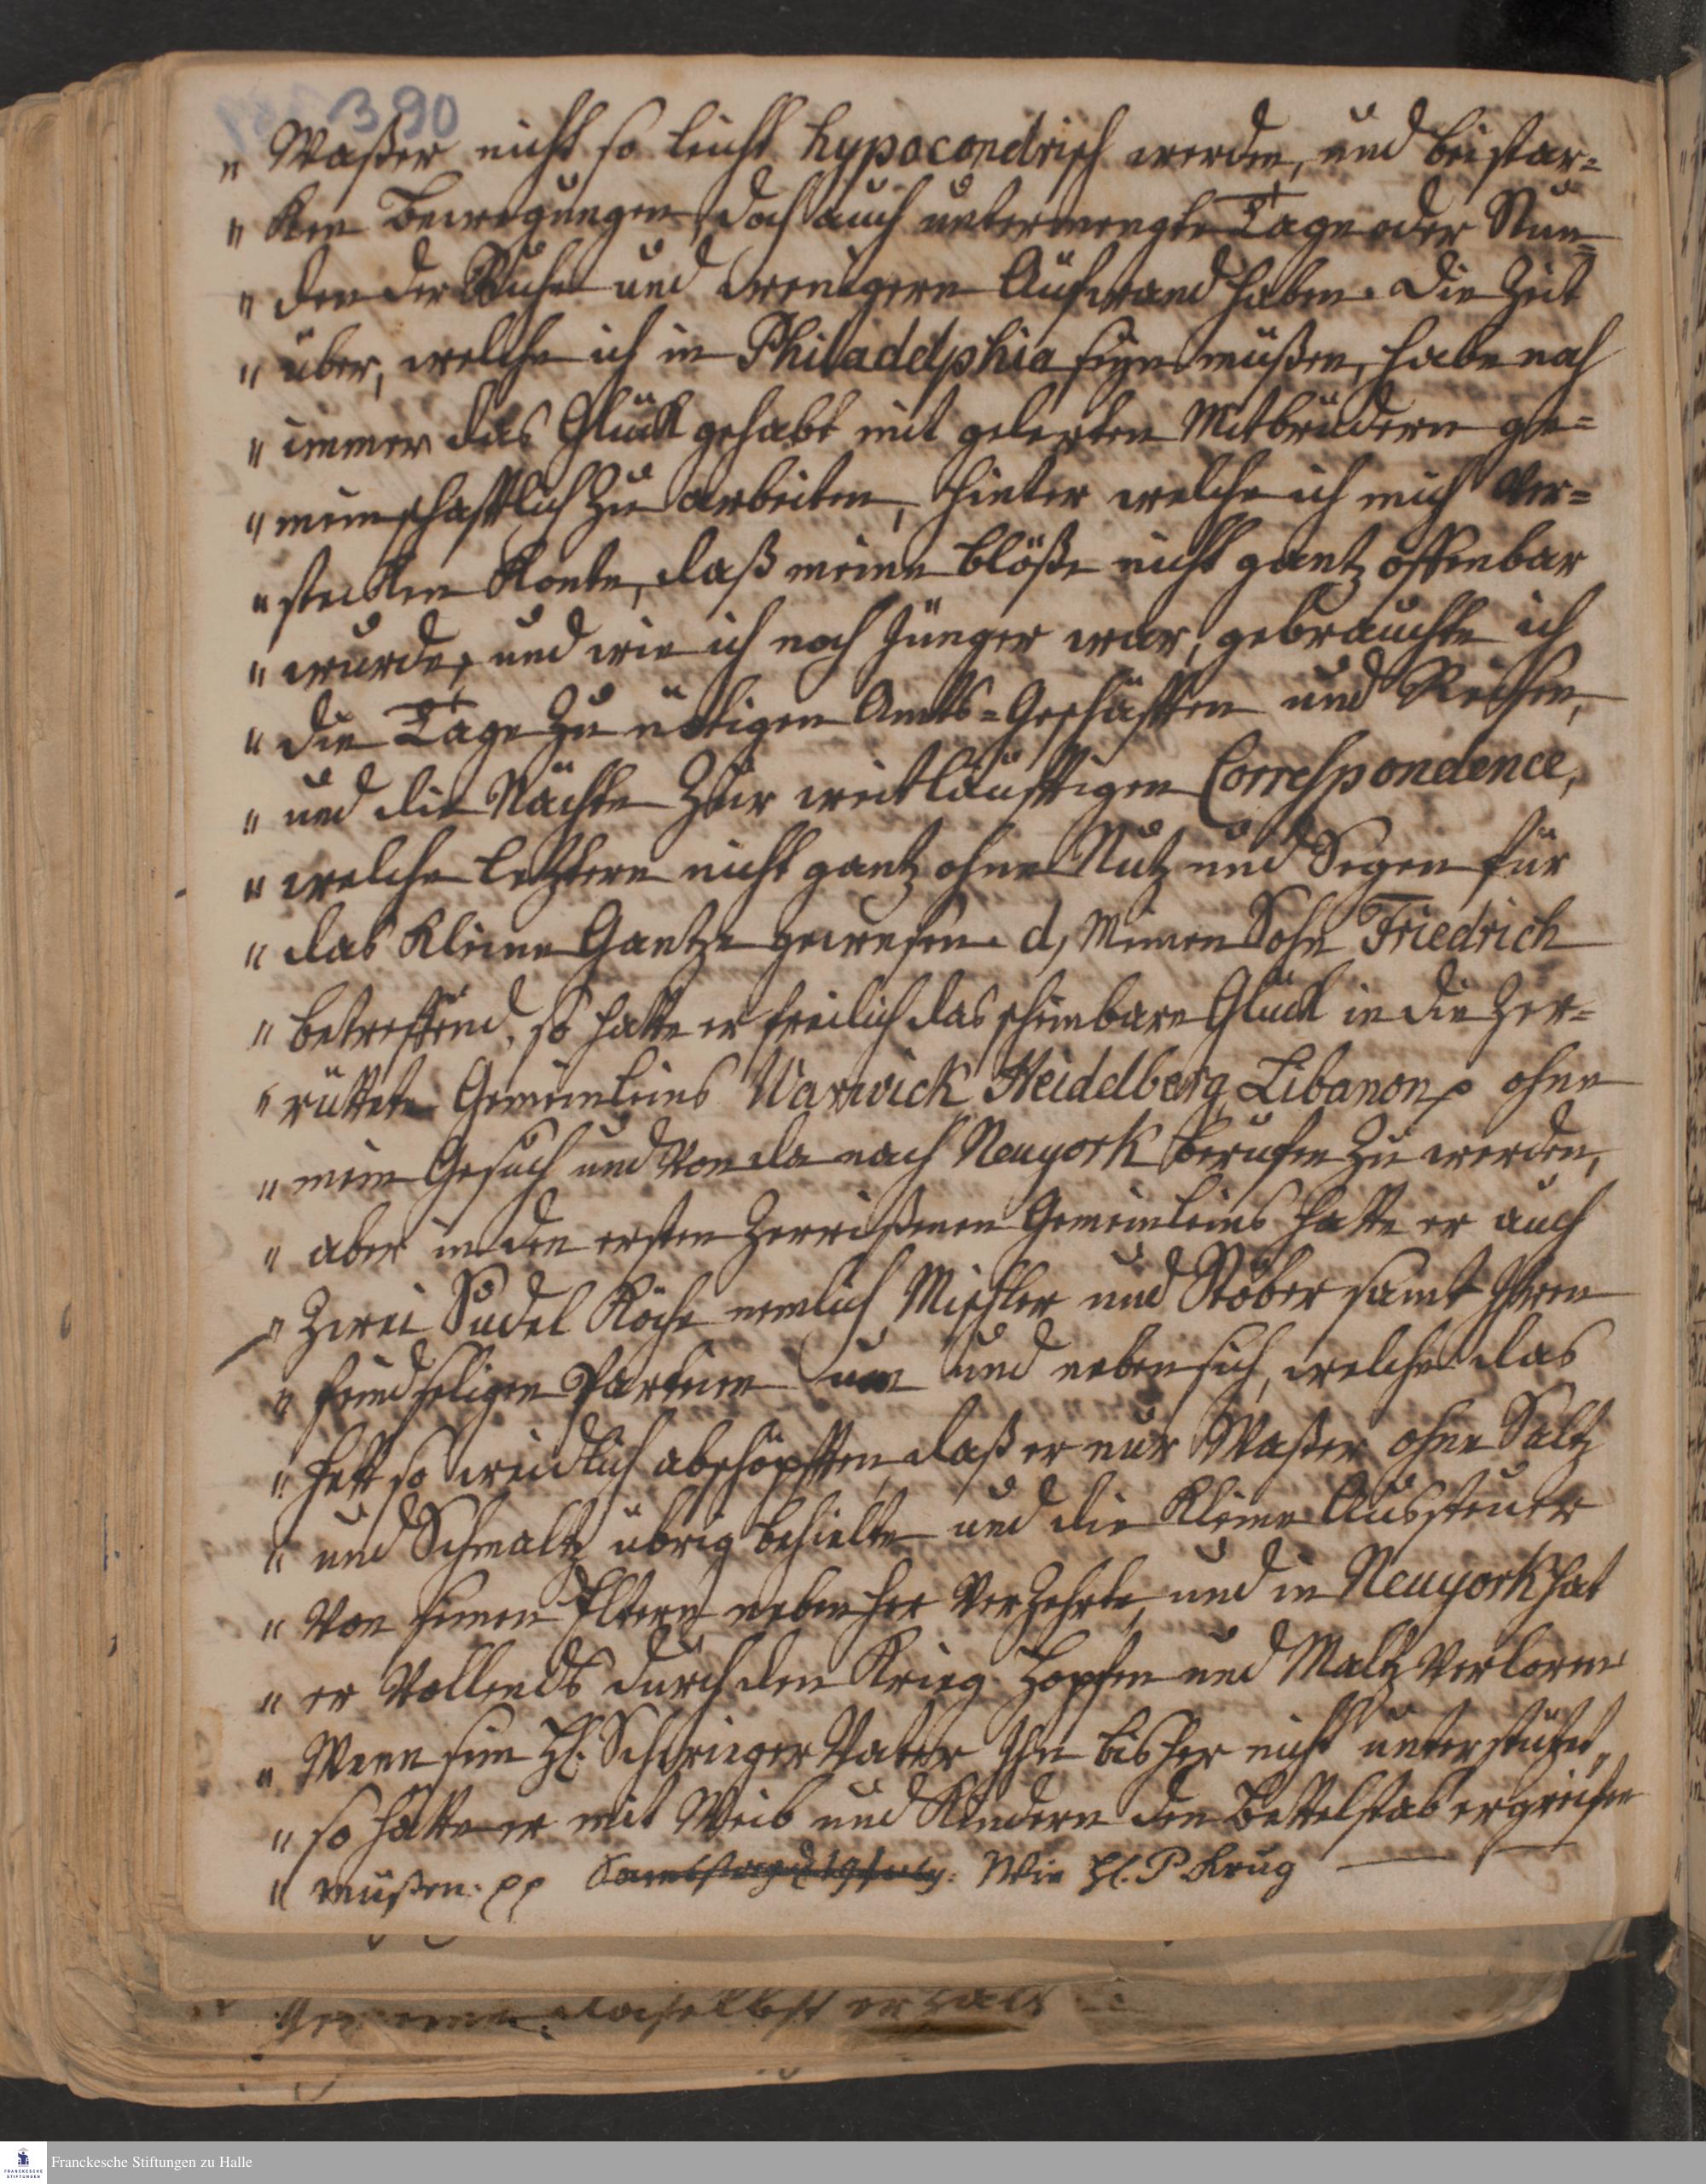 390
" Waßer nicht so leicht hypocondrisch werden, und bei star=
" ken Bewegungen doch auch untermengte Tage oder Stun=
" den der Ruhe und wenigern Aufwand haben. Die Zeit
" über, welche ich in Philadelphia seyn müßen, habe noch
" immer das Glück gehabt mit gelerten Mitbrüdern ge=
" meinschafftlich zu arbeiten, hinter welche ich mich ver=
" stecken konte, daß meine Blöße nicht gantz offenbar
" wurde, und wie ich noch Jünger war, gebrauchte ich
" die Tage zu nötigen Amts=Geschäfften und Reisen,
" und die Nächte zur weitläufftigen Correspondence,
" welche letztere nicht gantz ohne Nutz und Segen für
" das kleine Gantze gewesen. d, Meinen Sohn Friedrich
" betreffend, so hatte er freilich das scheinbare Glück in die Zer=
" rüttete Gemeinleins Warwick Heidelberg Libanon p ohne
" mein Gesuch und von da nach Neuyork beruffen zu werden,
" aber in den ersten zerrißenen Gemeinleins hatte er auch
" Zwei Sudel Köche nemlich Mischler und Stöber samt Ihren
" feindseligen Parteien um und neben sich, welche das
" Fett so weidlich abschöpfften, daß er nur Waßer ohne Saltz
" und Schmaltz übrig behielte und die kleine Aussteuer
" von seinen Eltern nebenher verzehrte, und in Neuyork hat
" er vollends durch den Krieg Hopfen und Maltz verloren
" Wenn sein H. Schwieger Vater Ihn bisher nicht unterstützet,
" so hätte er mit Weib und Kindern den Bettelstab ergreifen
" müßen. pp Wie H. P. Krug
Franckesche Stiftungen zu Halle